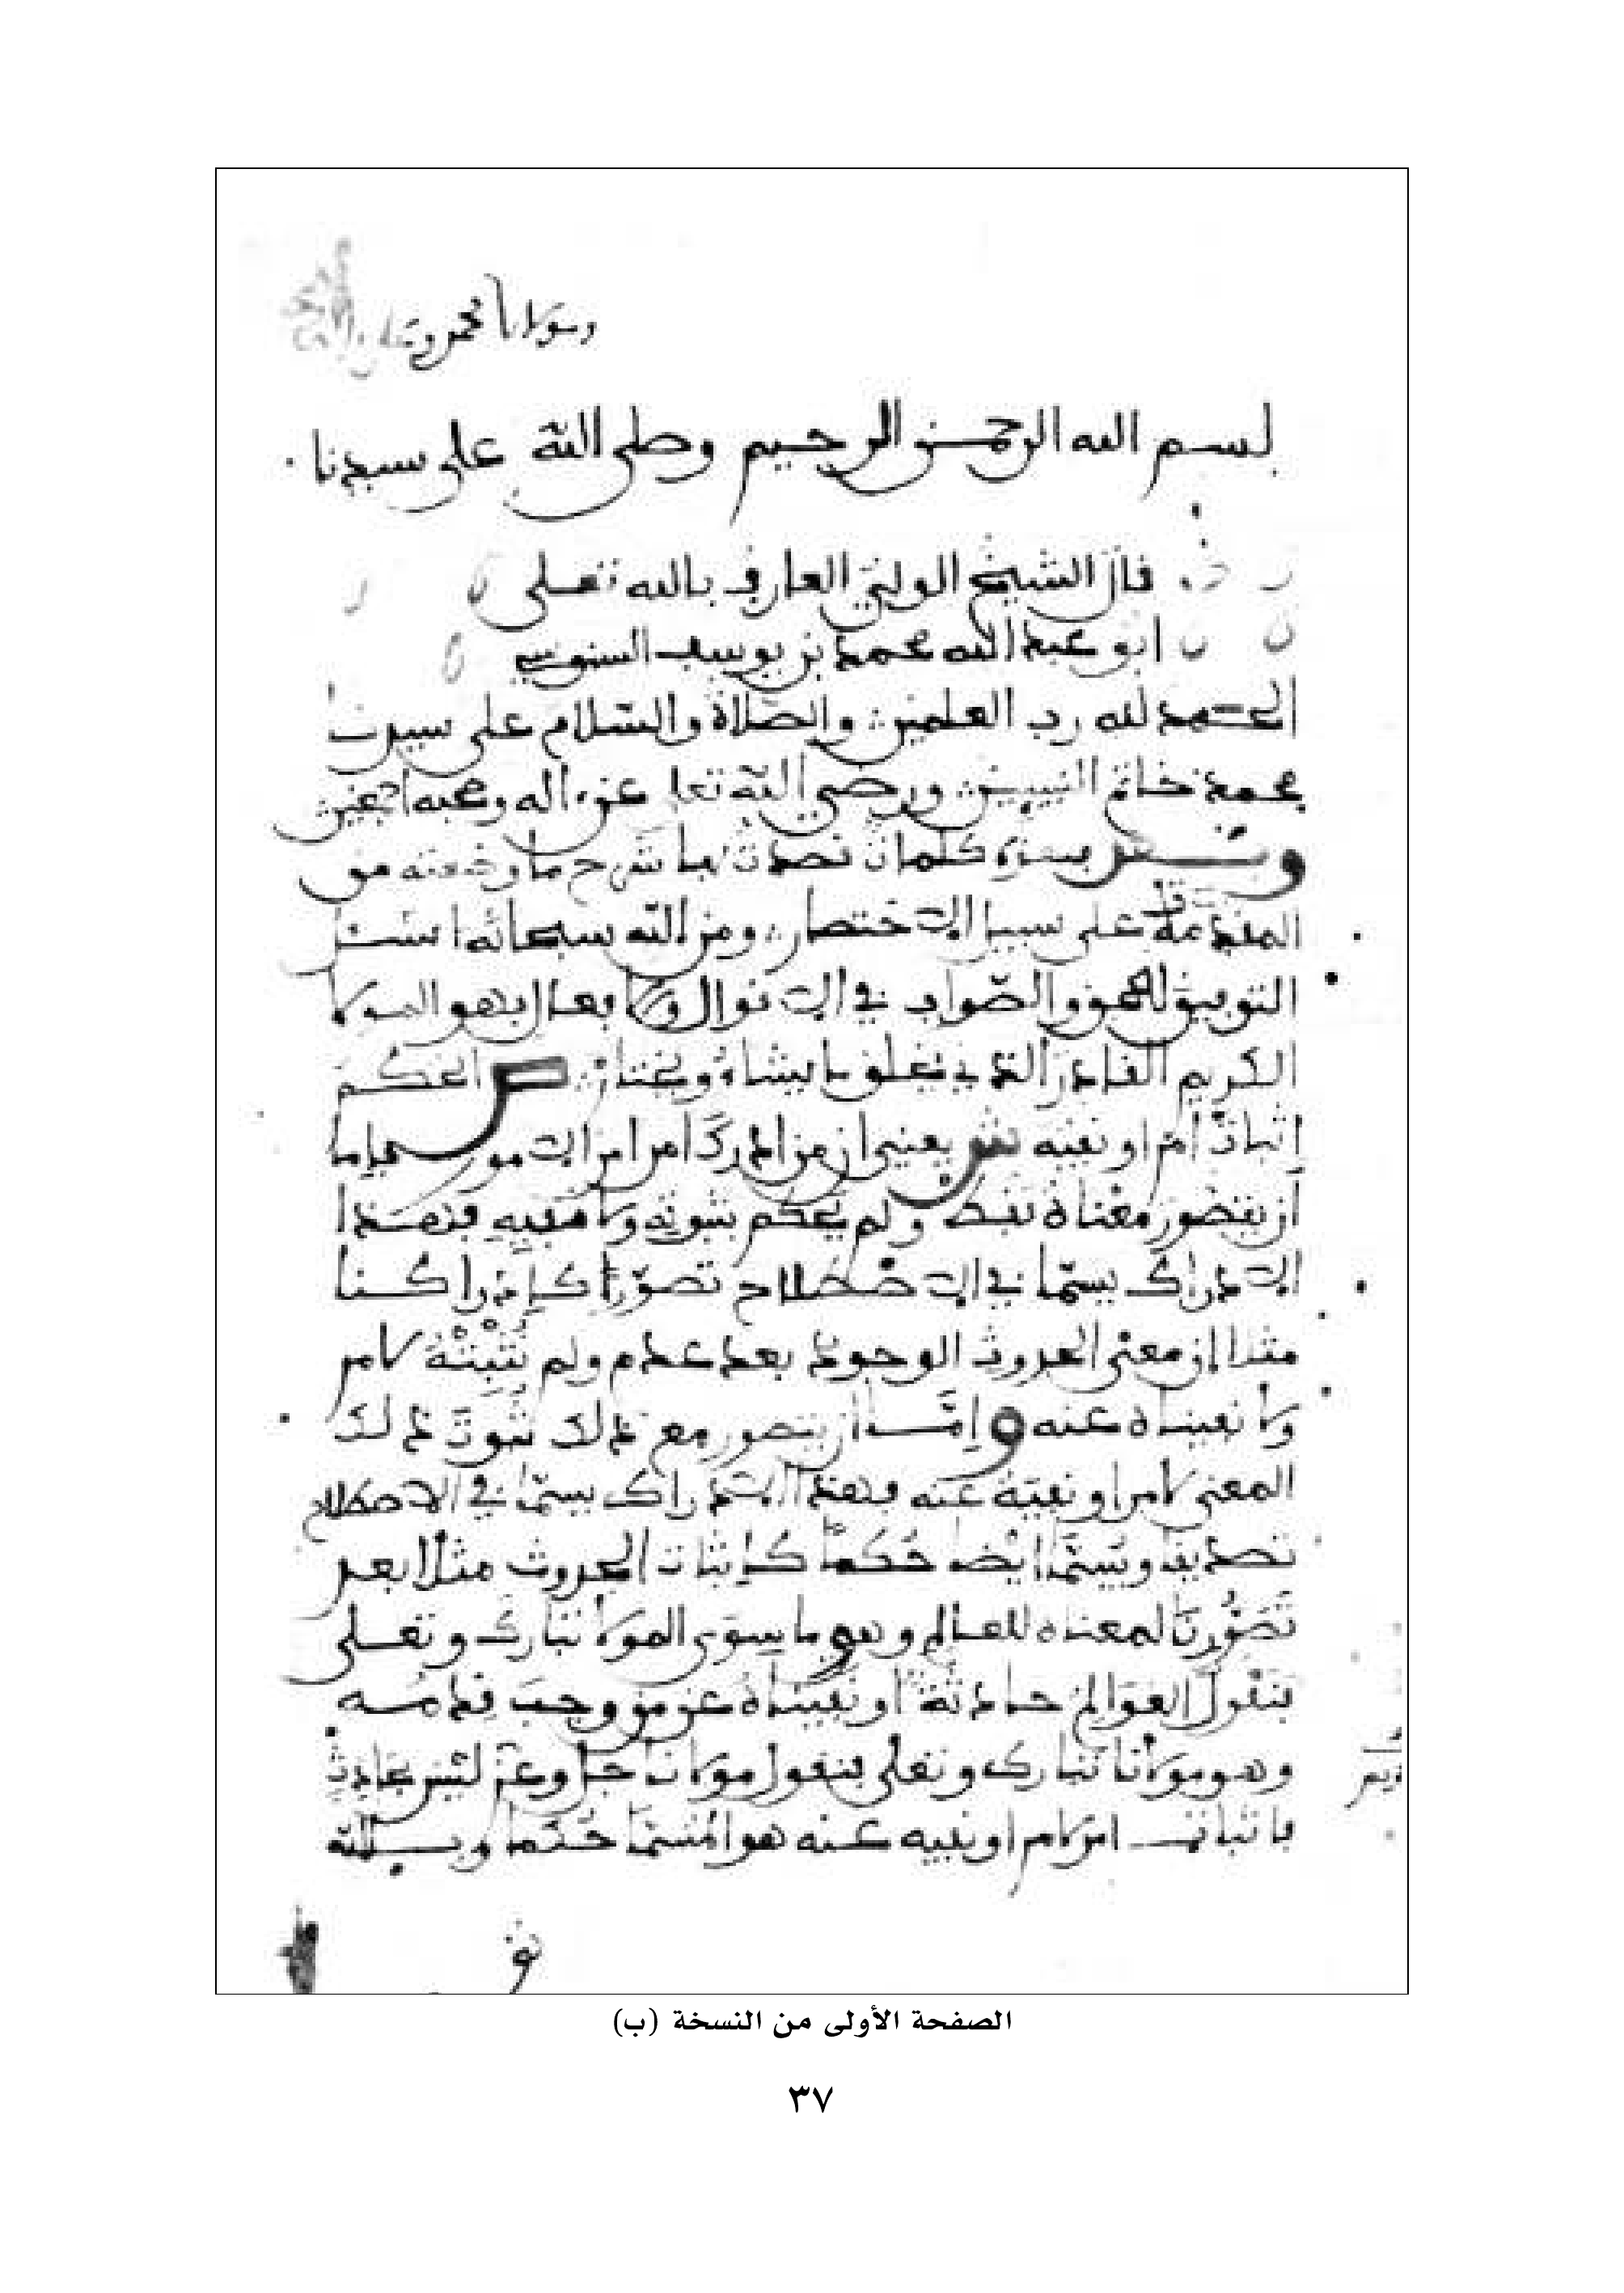 ومولانا محمد و
بسم الله الرحمن الرحيم وصلى الله على سيدنا
قال الشيخ الولي العارف بالله تعلى
ابو عبد الله محمد بن يوسف السنوسي
الحمد لله رب العلمين والصلاة والسلام على سيدنا
محمد خاتم النبيين ورضي الله تعلى عن اله وصحبه اجمعين
وبعد فهذه كلمات قصدت بها شرح ما وضعته من
المقدمة على سبيل الاختصار ومن الله سبحانه اسئل
التوفيق للحق والصواب في الاقوال والافعال فهو المولا
الكريم القادر الذي يخلق ما يشاء ويختار ص الحكم
إثبات امر او نفيه ش يعني ان من ادرك امرا من الامور فإما
أن يتصور معناه فقط ولم يحكم بثبوته ولا نفيه فهذا
الادراك يسمّا في الاصطلاح تصوّرا كإدراكنا
مثلا إن معنى الحدوث الوجود بعد عدم ولم نثبته لامر
ولا نفيناه عنه وإمّا ان يتصور مع ذلك ثبوت ذلك
المعنى لامر او نفيه عنه فهذا الادراك يسمّا في الاصطلاح
تصديقا ويسمّا ايضا حكما كإثبات الحدوث مثلا بعد
تصوّرنا لمعناه للعالم وهو ما سوى المولا تبارك وتعلى
فنقول العوالم حادثة او نفيناه عن من وجب قدمه
وهو مولانا تبارك وتعلى فنقول مولانا جل وعز ليس بحادث
فاثبات امر لامر او نفيه عنه هو المسمّا حكما وبالله
الصفحة الأولى من النسخة (ب)
٣٧